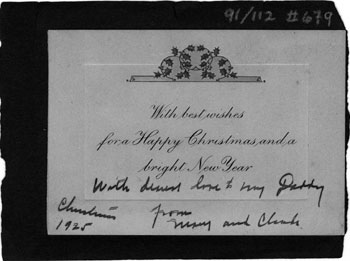 91/112 #679
With best wishes
for a Happy Christmas, and a
bright New Year
With dearest love to my Daddy
from
Christmas
1925
Mary and Charles